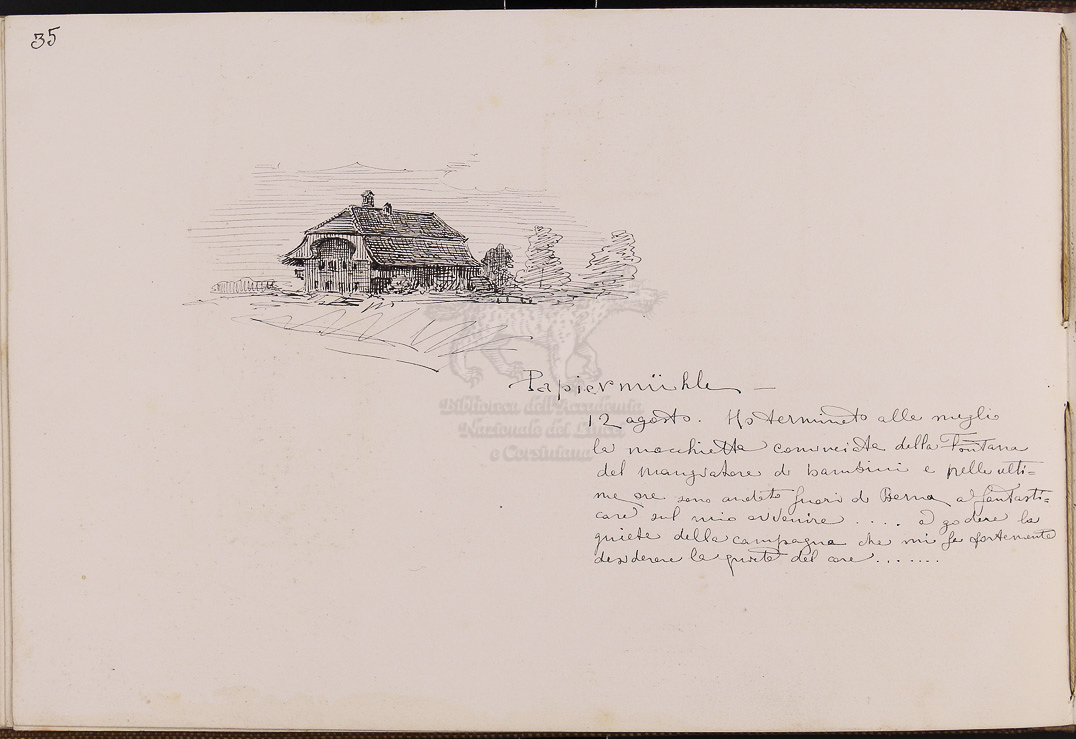 35
Papiermühle —
12 agosto. Ho terminato alle meglio
la macchietta cominciata della Fontana
del mangiatore di bambini e nelle ulti=
me ore sono andato fuori di Berna a fantasti=
care sul mio avvenire .... a godere la
quiete della campagna che mi fa fortemente
desiderare la quiete del core .......
Biblioteca dell'Accademia
Nazionale dei Lincei
e Corsiniana